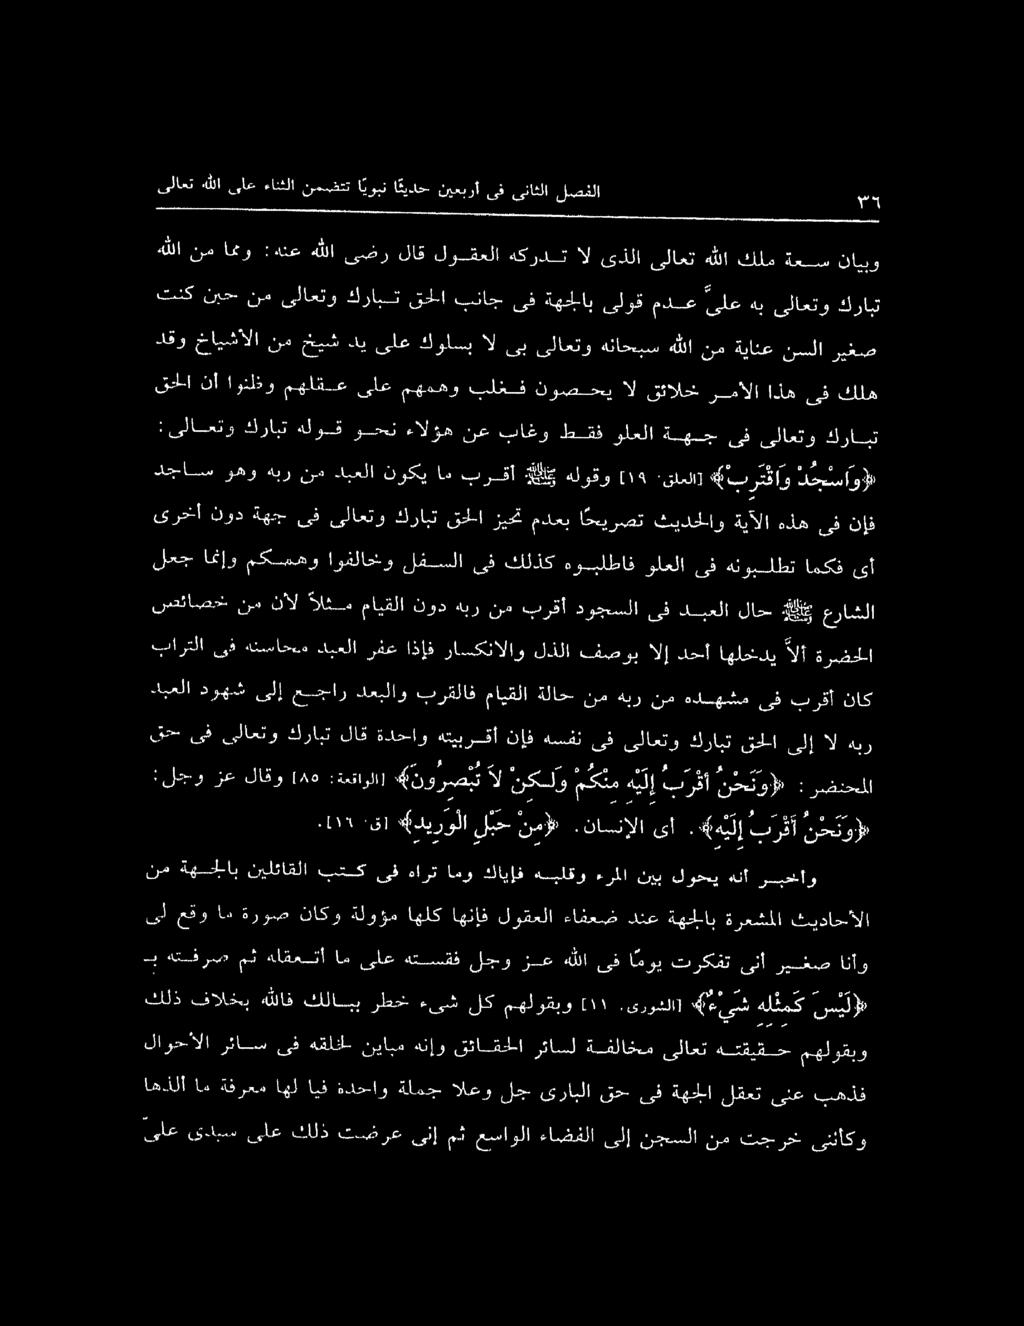 ٣٦
الفصل الثانى فى أربعين حديثًا نبويًا تتضمن الثناء على الله تعالى
وبيان سعة ملك الله تعالى الذى لا تدركه العقول قال رضى الله عنه: ومما من الله
تبارك وتعالى به علىّ عدم قولى بالجهة فى جانب الحق تبارك وتعالى من حين كنت
صغير السن عناية من الله سبحانه وتعالى بى لا بسلوك على يد شيخ من الأشياخ وقد
هلك فى هذا الأمر خلائق لا يحصون فغلب وهمهم على عقلهم وظنوا أن الحق
تبارك وتعالى فى جهة العلو فقط وغاب عن هؤلاء نحو قوله تبارك وتعالى:
﴿وَاسْجُدْ وَاقْتَرِبْ﴾ [العلق ١٩] وقوله ﷺ أقرب ما يكون العبد من ربه وهو ساجد
فإن فى هذه الآية والحديث تصريحًا بعدم تحيز الحق تبارك وتعالى فى جهة دون أخرى
أى فكما تطلبونه فى العلو فاطلبوه كذلك فى السفل وخالفوا وهمكم وإنما جعل
الشارع ﷺ حال العبد فى السجود أقرب من ربه دون القيام مثلاً لأن من خصائص
الحضرة ألاّ يدخلها أحد إلا بوصف الذل والانكسار فإذا عفر العبد محاسنه فى التراب
كان أقرب فى مشهده من ربه من حالة القيام فالقرب والبعد راجع إلى شهود العبد
ربه لا إلى الحق تبارك وتعالى فى نفسه فإن أقربيته واحدة قال تبارك وتعالى فى حق
المحتضر: ﴿وَنَحْنُ أَقْرَبُ إِلَيْهِ مِنْكُمْ وَلَكِنْ لاَ تُبْصِرُونَ﴾ [الواقعة: ٨٥] وقال عز وجل:
﴿وَنَحْنُ أَقْرَبُ إِلَيْهِ﴾. أى الإنسان. ﴿مِنْ حَبْلِ الْوَرِيدِ﴾ [ق ١٦].
وأخبر أنه يحول بين المرء وقلبه فإياك وما تراه فى كتب القائلين بالجهة من
الأحاديث المشعرة بالجهة عند ضعفاء العقول فإنها كلها مؤولة وكان صورة ما وقع لى
وأنا صغير أنى تفكرت يومًا فى الله عز وجل فقسته على ما أتعقله ثم صرفته بـ
﴿لَيْسَ كَمِثْلِهِ شَيْءٌ﴾ [الشورى. ١١] وبقولهم كل شىء خطر ببالك فالله بخلاف ذلك
وبقولهم حقيقته تعالى مخالفة لسائر الحقائق وإنه مباين لخلقه فى سائر الأحوال
فذهب عنى تعقل الجهة فى حق البارى جل وعلا جملة واحدة فيا لها معرفة ما ألذها
وكأننى خرجت من السجن إلى الفضاء الواسع ثم إنى عرضت ذلك على سيدى علىّ